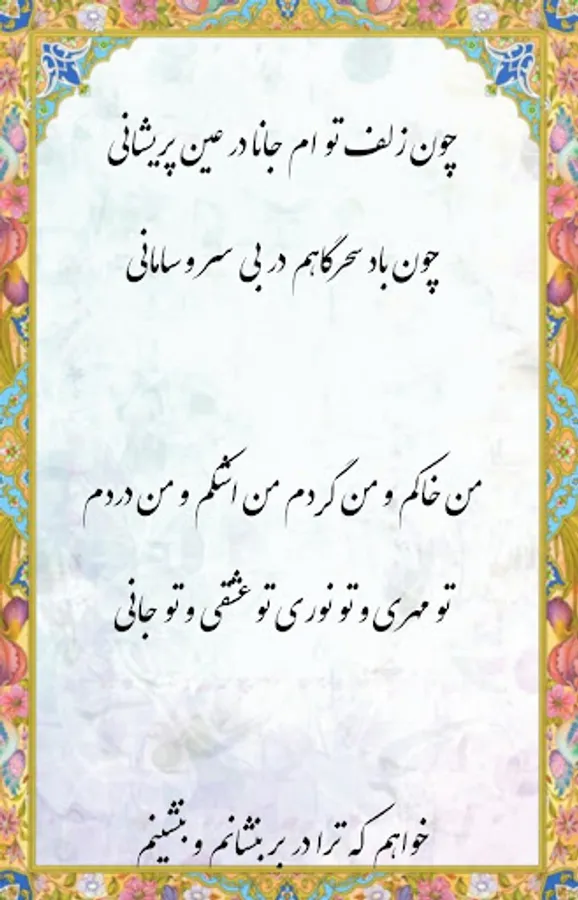 چون زلف تو ام جانا در عین پریشانی
چون باد سحرگاهم در بی سر و سامانی
من خاکم و من گردم من اشکم و من دردم
تو مهری و تو نوری تو عشقی و تو جانی
خواهم که ترا در بر بنشانم و بنشینم